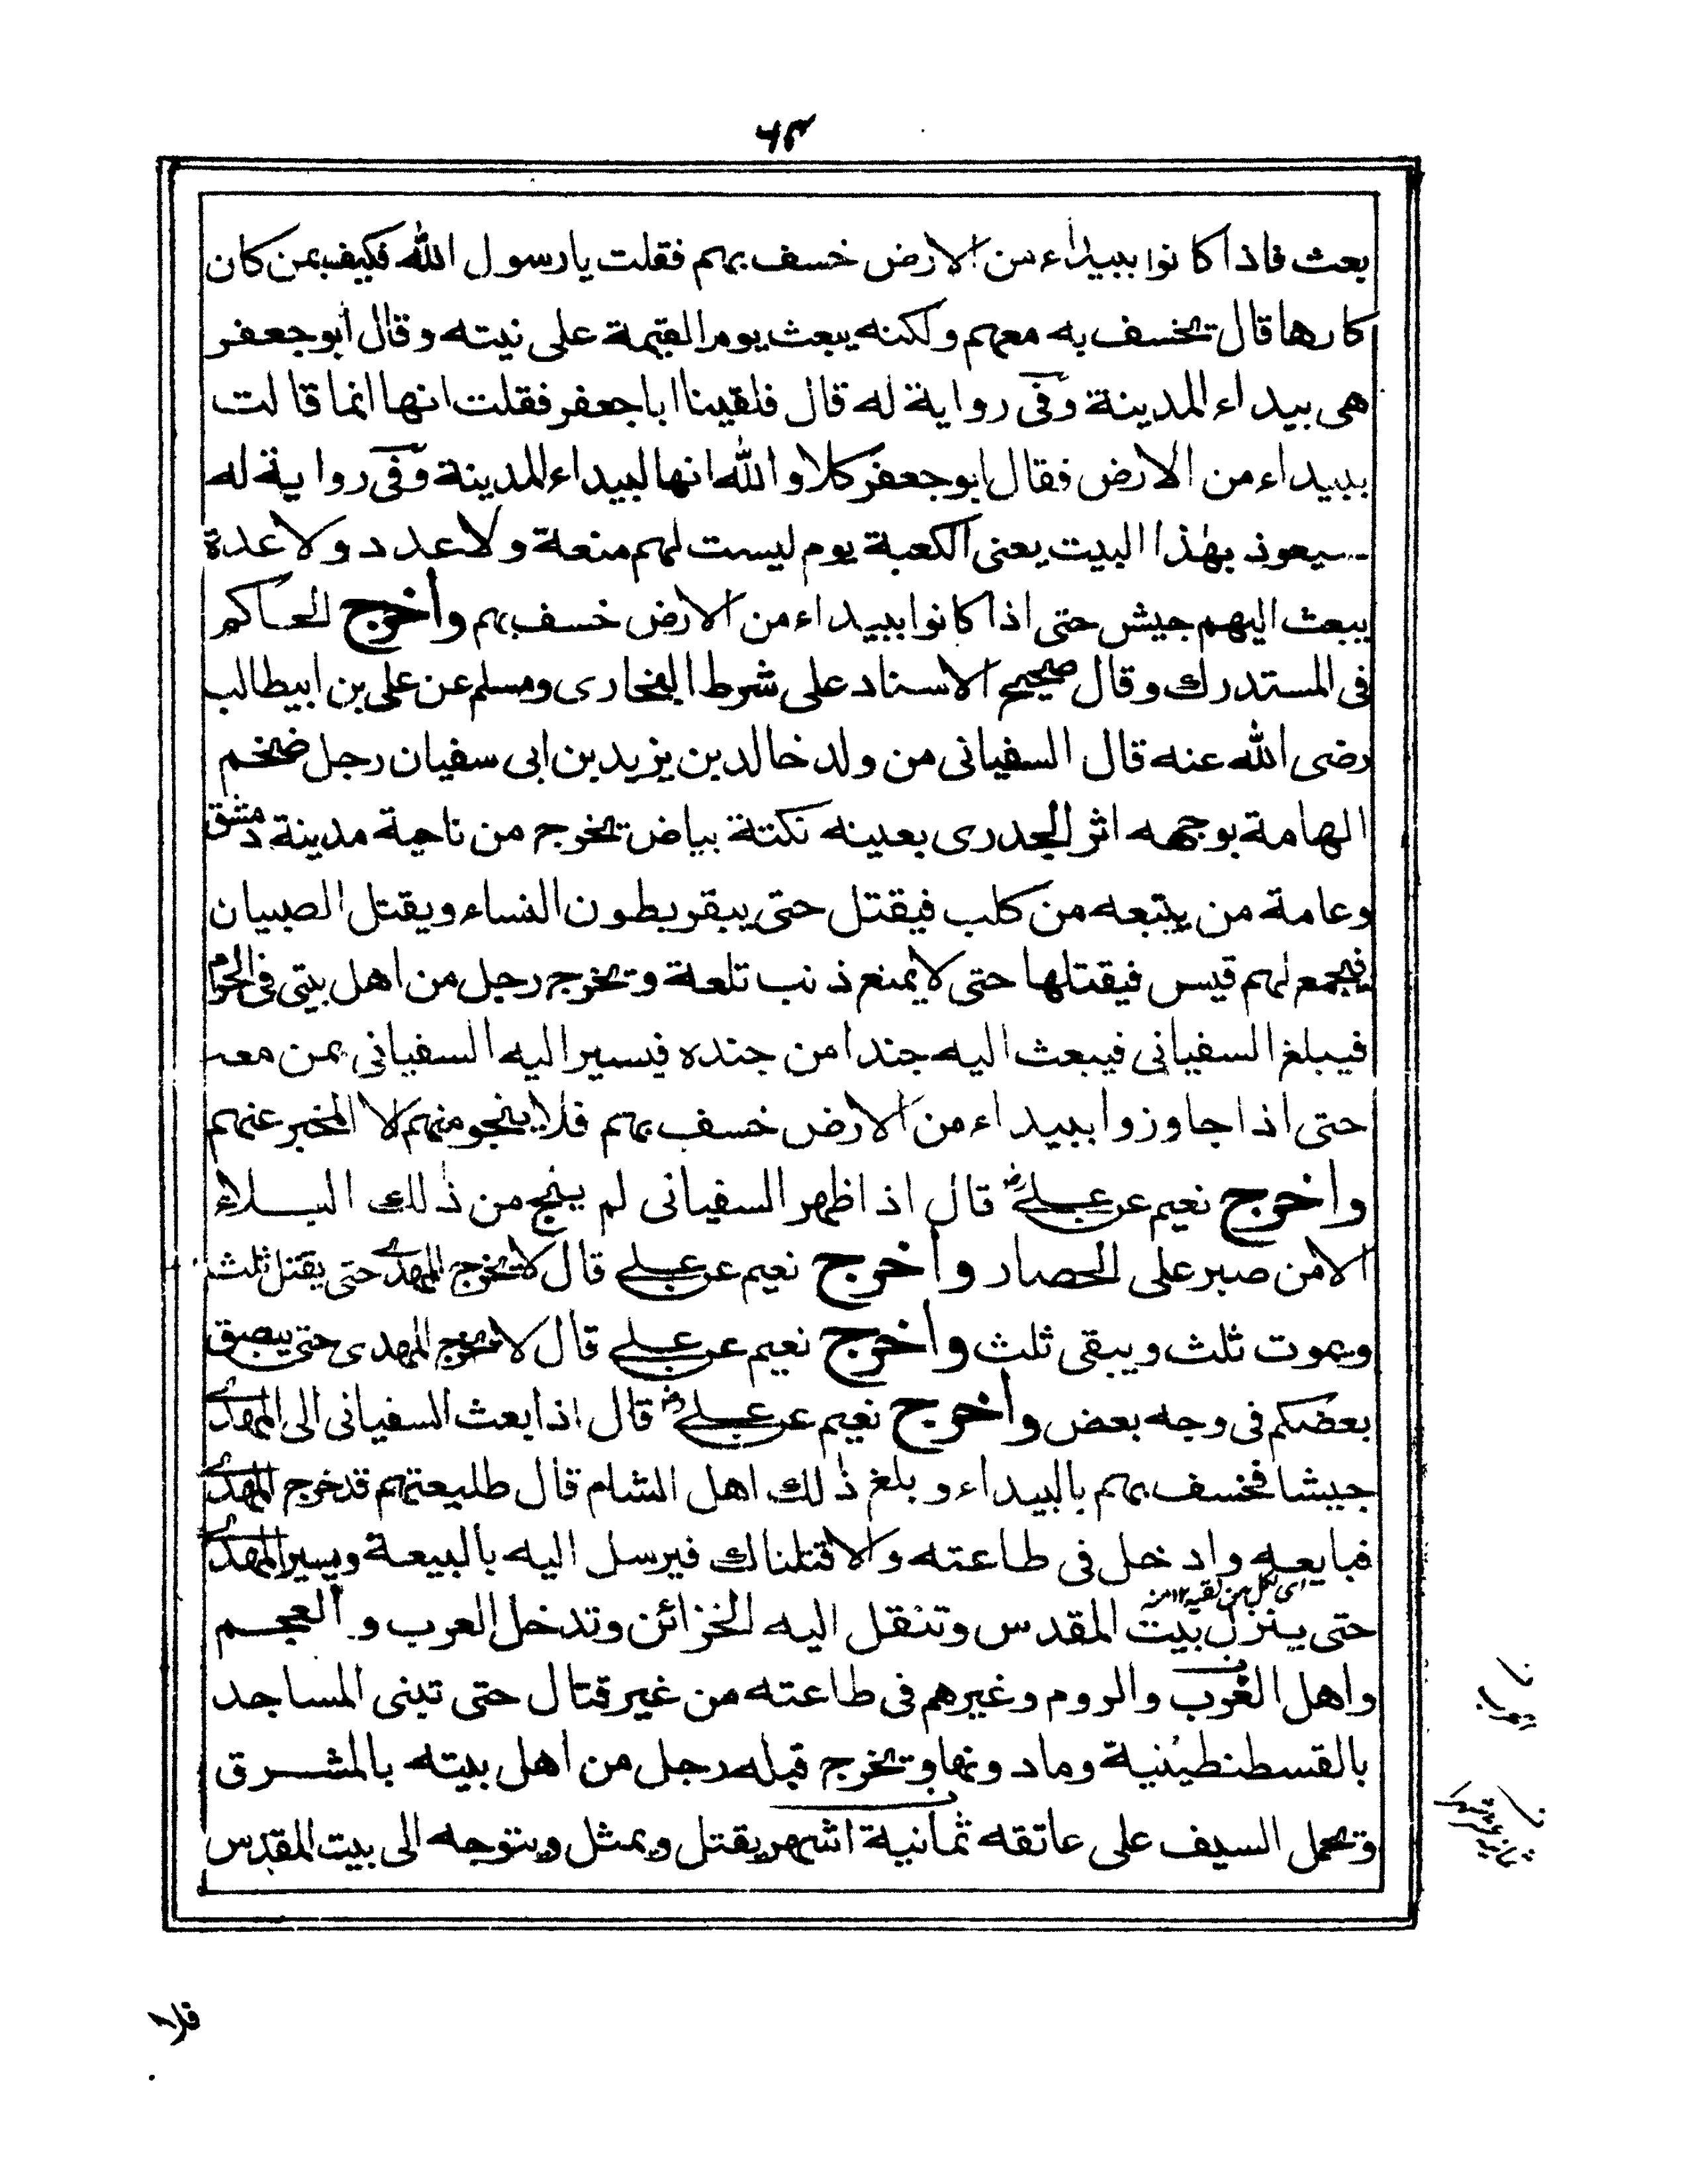 بعث فاذا كانوا ببيداء من الارض خسف بهم فقلت يا رسول الله فكيف بمن كان
كارها قال يخسف به معهم ولكنه يبعث يوم القيمة على نيته وقال ابو جعفر
هى بيداء المدينة وفى رواية له قال فلقينا ابا جعفر فقلت انها انما قالت
ببيداء من الارض فقال ابو جعفر كلا والله انها لبيداء المدينة وفى رواية له
سيعوذ بهذا البيت يعنى الكعبة يوم ليست لهم منعة ولا عدد ولا عدة
يبعث اليهم جيش حتى اذا كانوا ببيداء من الارض خسف بهم واخرج الحاكم
فى المستدرك وقال صحيح الاسناد على شرط البخارى ومسلم عن على بن ابيطالب
رضى الله عنه قال السفيانى من ولد خالد بن يزيد بن ابى سفيان رجل ضخم
الهامة بوجهه اثر الجدرى بعينه نكتة بياض يخرج من ناحية مدينة دمشق
وعامة من يتبعه من كلب فيقتل حتى يبقر بطون النساء ويقتل الصبيان
فيجمع لهم قيس فيقتلها حتى لا يمنع ذنب تلعة ويخرج رجل من اهل بيتى فى الحرم
فيبلغ السفيانى فيبعث اليه جندا من جنده فيسير اليه السفيانى بمن معه
حتى اذا جاوزوا ببيداء من الارض خسف بهم فلا ينجو منهم الا المخبر عنهم
واخرج نعيم عن علي رض قال اذا ظهر السفيانى لم ينج من ذلك البلاء
الا من صبر على الحصار واخرج نعيم عن علي قال لا يخرج المهدي حتى يقتل ثلث
ويموت ثلث ويبقى ثلث واخرج نعيم عن علي قال لا يخرج المهدى حتى يبصق
بعضكم فى وجه بعض واخرج نعيم عن علي رض قال اذا بعث السفيانى الى المهدي
جيشا فخسف بهم بالبيداء وبلغ ذلك اهل الشام قال طليعتهم قد خرج المهدي
فبايعه وادخل فى طاعته والا قتلناك فيرسل اليه بالبيعة ويسير المهدي
حتى ينزل بيت المقدس وتنقل اليه الخزائن وتدخل العرب والعجم
واهل الغرب والروم وغيرهم فى طاعته من غير قتال حتى تبنى المساجد
بالقسطنطينية وما دونها ويخرج قبله رجل من اهل بيته بالمشرق
ويحمل السيف على عاتقه ثمانية اشهر يقتل ويمثل ويتوجه الى بيت المقدس
فلا